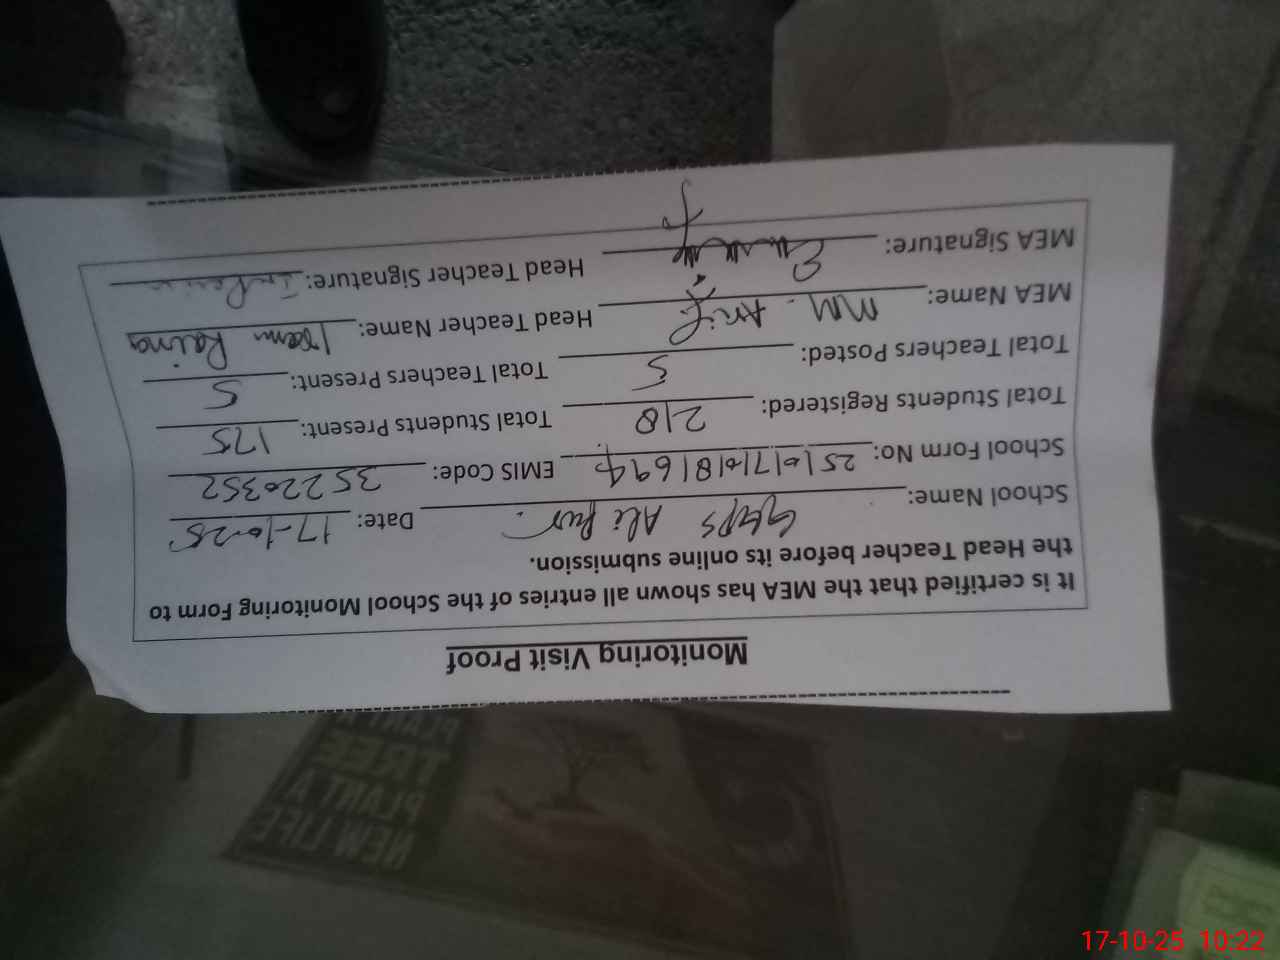 Monitoring Visit Proof
It is certified that the MEA has shown all entries of the School Monitoring Form to
the Head Teacher before its online submission.
School Name: GGPS Ali Pur. Date: 17-10-25
School Form No: EMIS Code: 35220352
Total Students Registered: 218 Total Students Present: 175
Total Teachers Posted: 5 Total Teachers Present: 5
MEA Name: MM. Arif Head Teacher Name: Iram
MEA Signature: Head Teacher Signature:
NEW LIFE
PLANT A
TREE
PLANT A
17-10-25 10:22